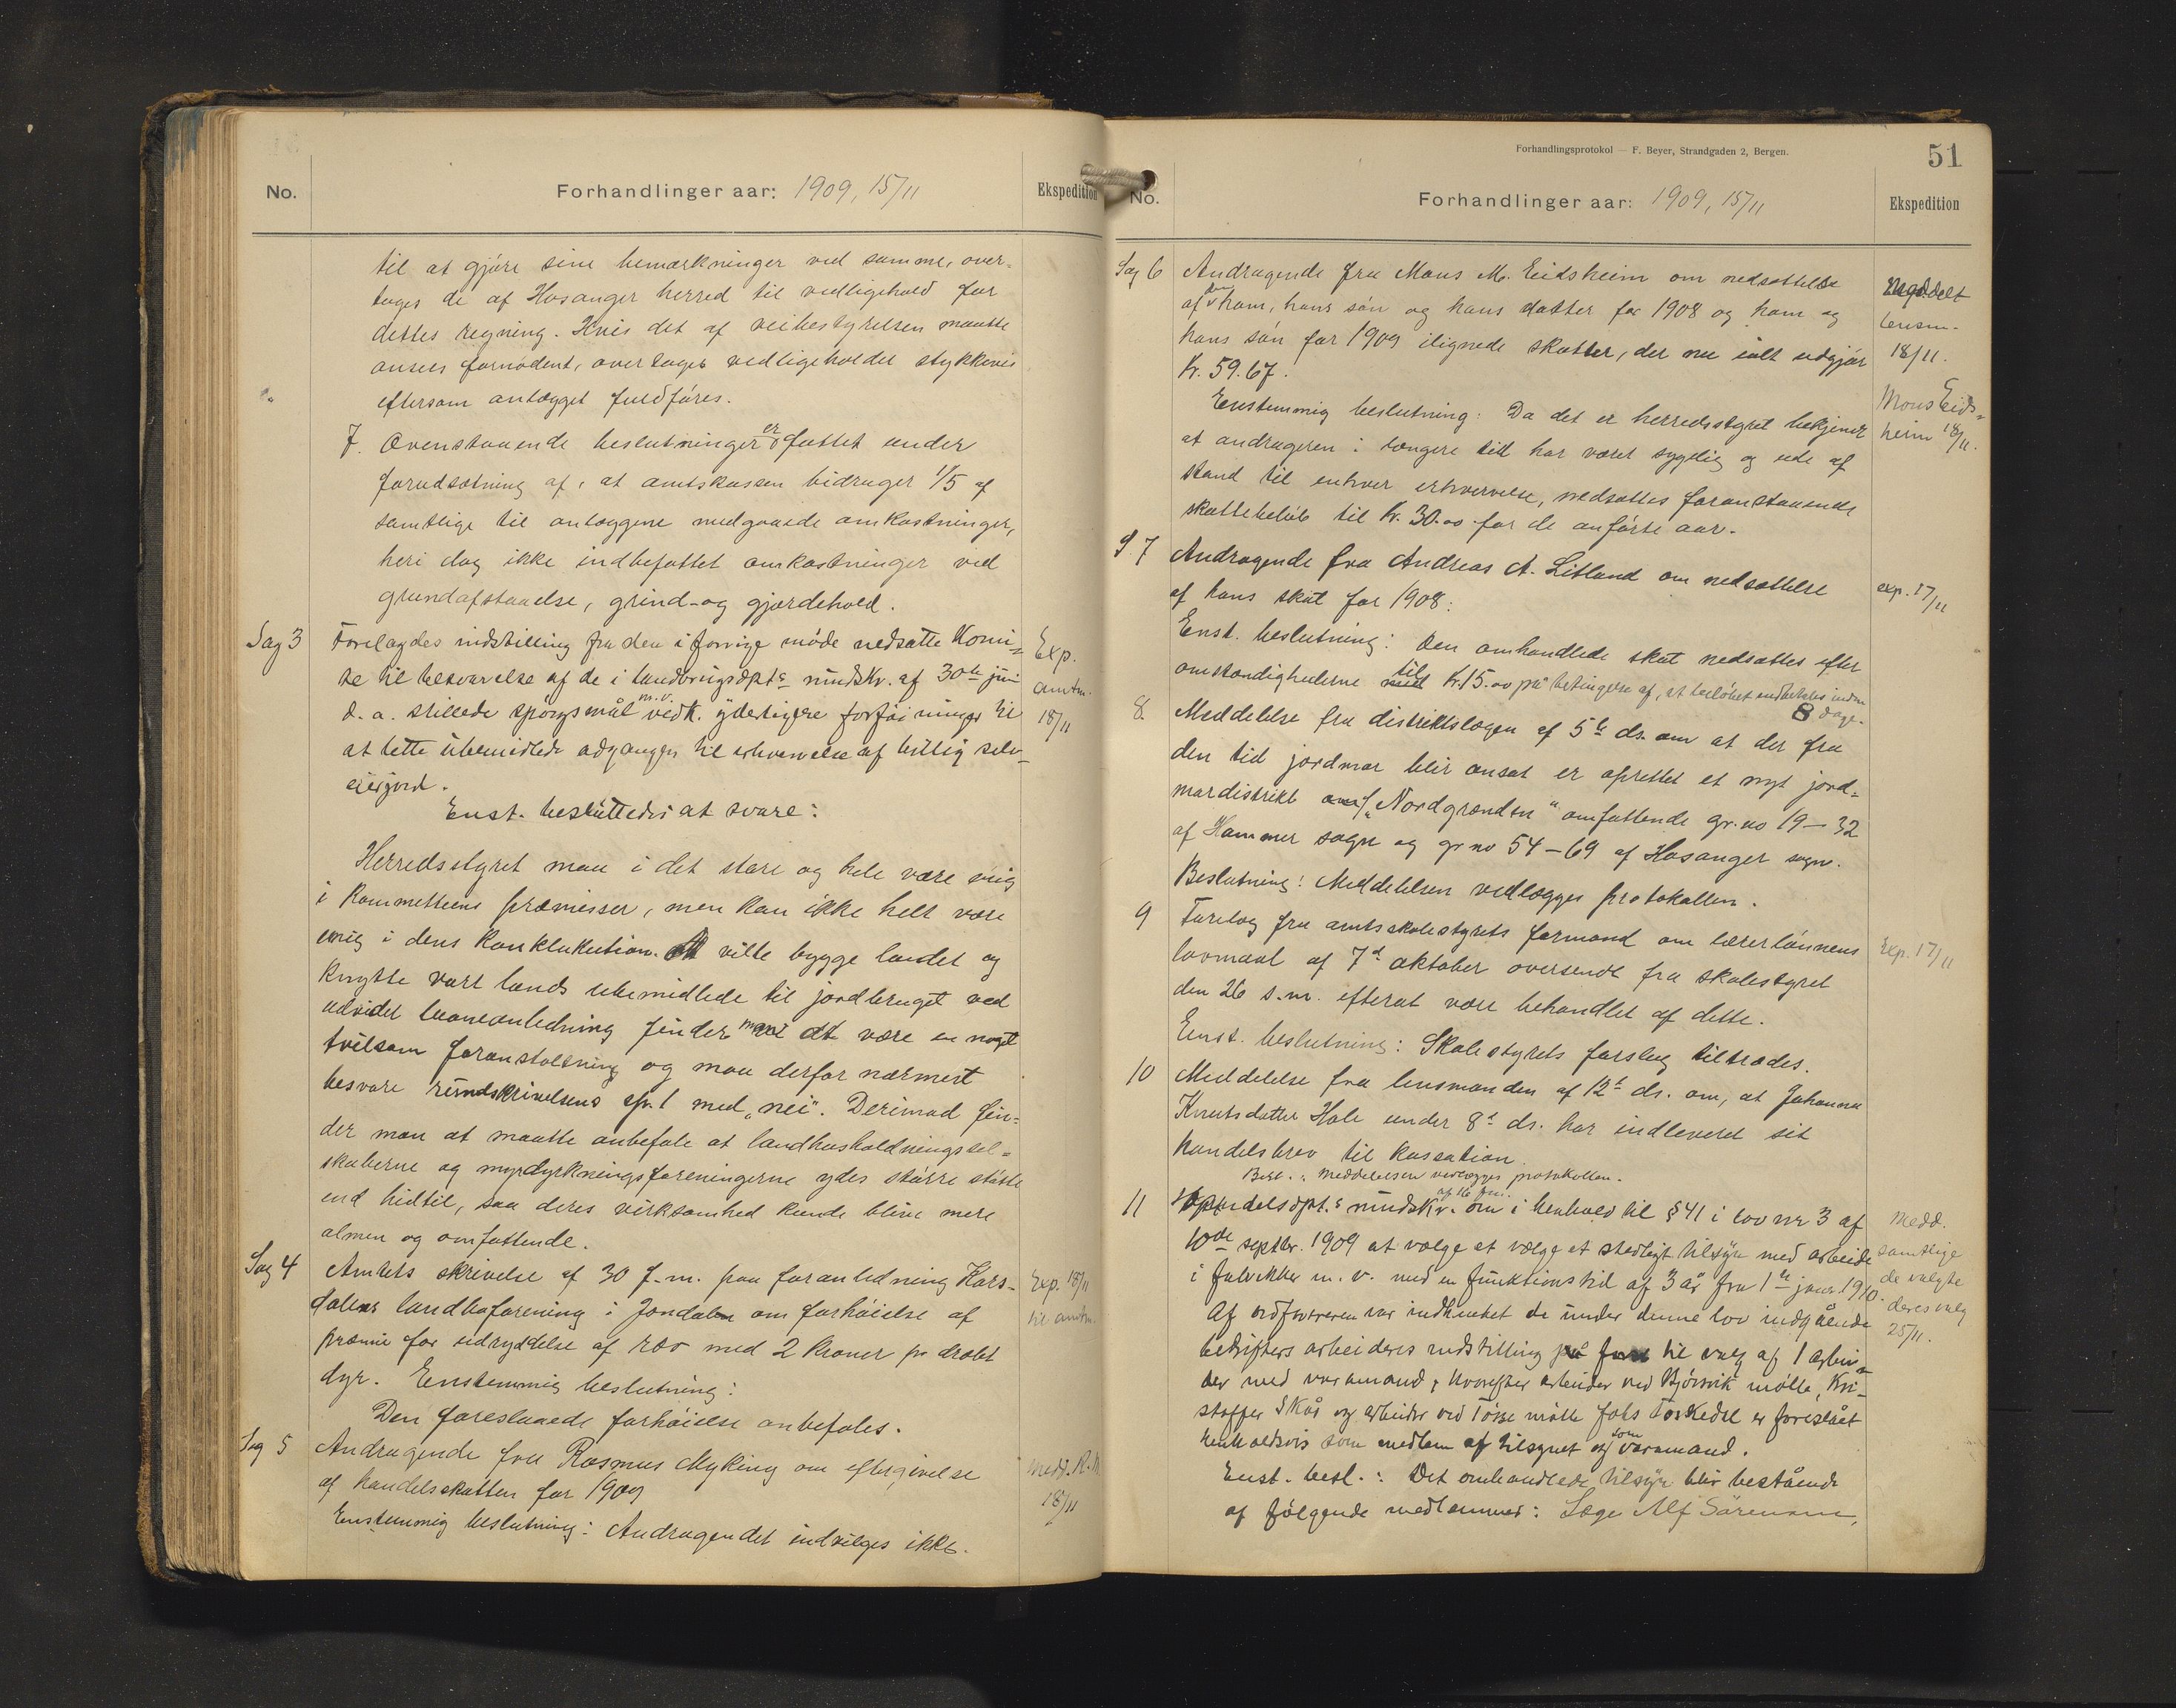 No.
Forhandlinger aar: 1909, 15/11
Ekspedition
til at gjøre sine bemærkninger ved samme, over-
tages de af Hosanger herred til vedligehold for
dettes regning. Hvis det af veibestyrelsen maatte
ansees fornødent, overtages vedligeholdet stykkevis
eftersom anlægget fuldføres.
7. Ovenstaaende beslutninger er fattet under
forudsætning af, at amtskassen bidrager 1/5 af
samtlige til anlæggene medgaaede omkostninger,
heri dog ikke indbefattet omkostninger ved
grundafstaaelse, grind- og gjærdehold.
Sag 3 Forelagdes indstilling fra den i forrige møde nedsatte Komi-
te til besvarelse af de i landbrugsdpts rundskr. af 30te juni
d. a. stillede spørgsmål m.v. vedk. yderligere forføininger til
at lette ubemidlede adgangen til erhvervelse af billig selv-
eierjord.
Exp.
amtm.
18/11
Enst. besluttedes at svare:
Herredsstyret maa i det store og hele være enig
i Kommitteens præmisser, men kan ikke helt være
enig i dens Konklukution. At ville bygge landet og
knytte vort lands ubemidlede til jordbruget ved
udvidet laaneanledning finder man at være en noget
tvilsom foranstaltning og maa derfor nærmest
besvare rundskrivelsens spr. 1 med "nei". Derimod fin-
der man at maatte anbefale at landhusholdningssel-
skaberne og myrdyrkningsforeningerne ydes større støtte
end hidtil, saa deres virksomhed kunde blive mere
almen og omfattende.
Sag 4 Amtets skrivelse af 30 f.m. paa foranledning Kors-
dalens landboforening i Jondalen om forhøielse af
præmie for udryddelse af ræv med 2 kroner pr dræbt
dyr. Enstemmig beslutning:
Den foreslaaede forhøielse anbefales.
Exp. 18/11
til amtm.
Sag 5 Andragende fra Rasmus Myking om eftergivelse
af handelsskatten for 1909
Enstemmig beslutning: Andragendet indvilges ikke.
Medd. R. M.
18/11
Forhandlingsprotokol — F. Beyer, Strandgaden 2, Bergen.
51
No.
Forhandlinger aar: 1909, 15/11
Ekspedition
Sag 6 Andragende fra Mons M. Eidsheim om nedsættelse
af ham, hans søn og hans datter for 1908 og ham og
hans søn for 1909 ilignede skatter, der nu ialt udgjør
Kr. 59.67.
Meddelt
lensm.
18/11.
Mons Eids-
heim 18/11.
Enstemmig beslutning: Da det er herredsstyret bekjendt
at andrageren i længere tid har været sygelig og ude af
stand til enhver erhvervelse, nedsættes foranstaaende
skattebeløb til kr. 30.00 for de anførte aar.
S. 7 Andragende fra Andreas A. Litland om nedsættelse
af hans skat for 1908:
exp. 17/11
Enst. beslutning: Den omhandlede skat nedsættes efter
omstændighederne til kr. 15.00 på betingelse af, at beløbet indbetales inden
8 dage.
8. Meddelelse fra distriktslægen af 5te ds. om at der fra
den tid jordmor blir ansat er oprettet et nyt jord-
mordistrikt "Nordgrænden" omfattende gr. no 19—32
af Hammer sogn og gr no 54—69 af Hosanger sogn.
Beslutning: Meddelelsen vedlægges protokollen.
9 Forelæg fra amtsskolestyrets formand om lærerlønnens
lovmaal af 7d oktober oversendt fra skolestyret
den 26 s.m. efterat være behandlet af dette.
Enst. beslutning: Skolestyrets forslag tiltrædes.
Exp. 17/11
10 Meddelelse fra lensmanden af 12t ds. om, at Johanna
Knutsdatter Hole under 8d ds. har indleveret sit
handelsbrev til kassation.
Besl.: Meddelelsen vedlægges protokollen.
11 Handelsdpt.s rundskr. af 16 f.m. om i henhold til § 41 i lov nr 3 af
10de septbr. 1909 at vælge et vælge et stedligt tilsyn med arbeide
i fabrikker m. v. med en funktionstid af 3 år fra 1te janr. 1910.
Af ordføreren var indhentet de under denne lov indgående
bedrifters arbeideres indstilling til valg af 1 arbei-
der med varamand, hvorefter arbeider ved Bjørsvik mølle, Kri-
stoffer Skår og arbeider ved Tøsse mølle Johs Toskedal er foreslået
henholdsvis som medlem af tilsynet og som varamand.
Enst. besl.: Det omhandlede tilsyn blir bestående
af følgende medlemmer: Læge Alf Sørensen,
Medd.
samtlige
de valgte
deres valg
25/11.